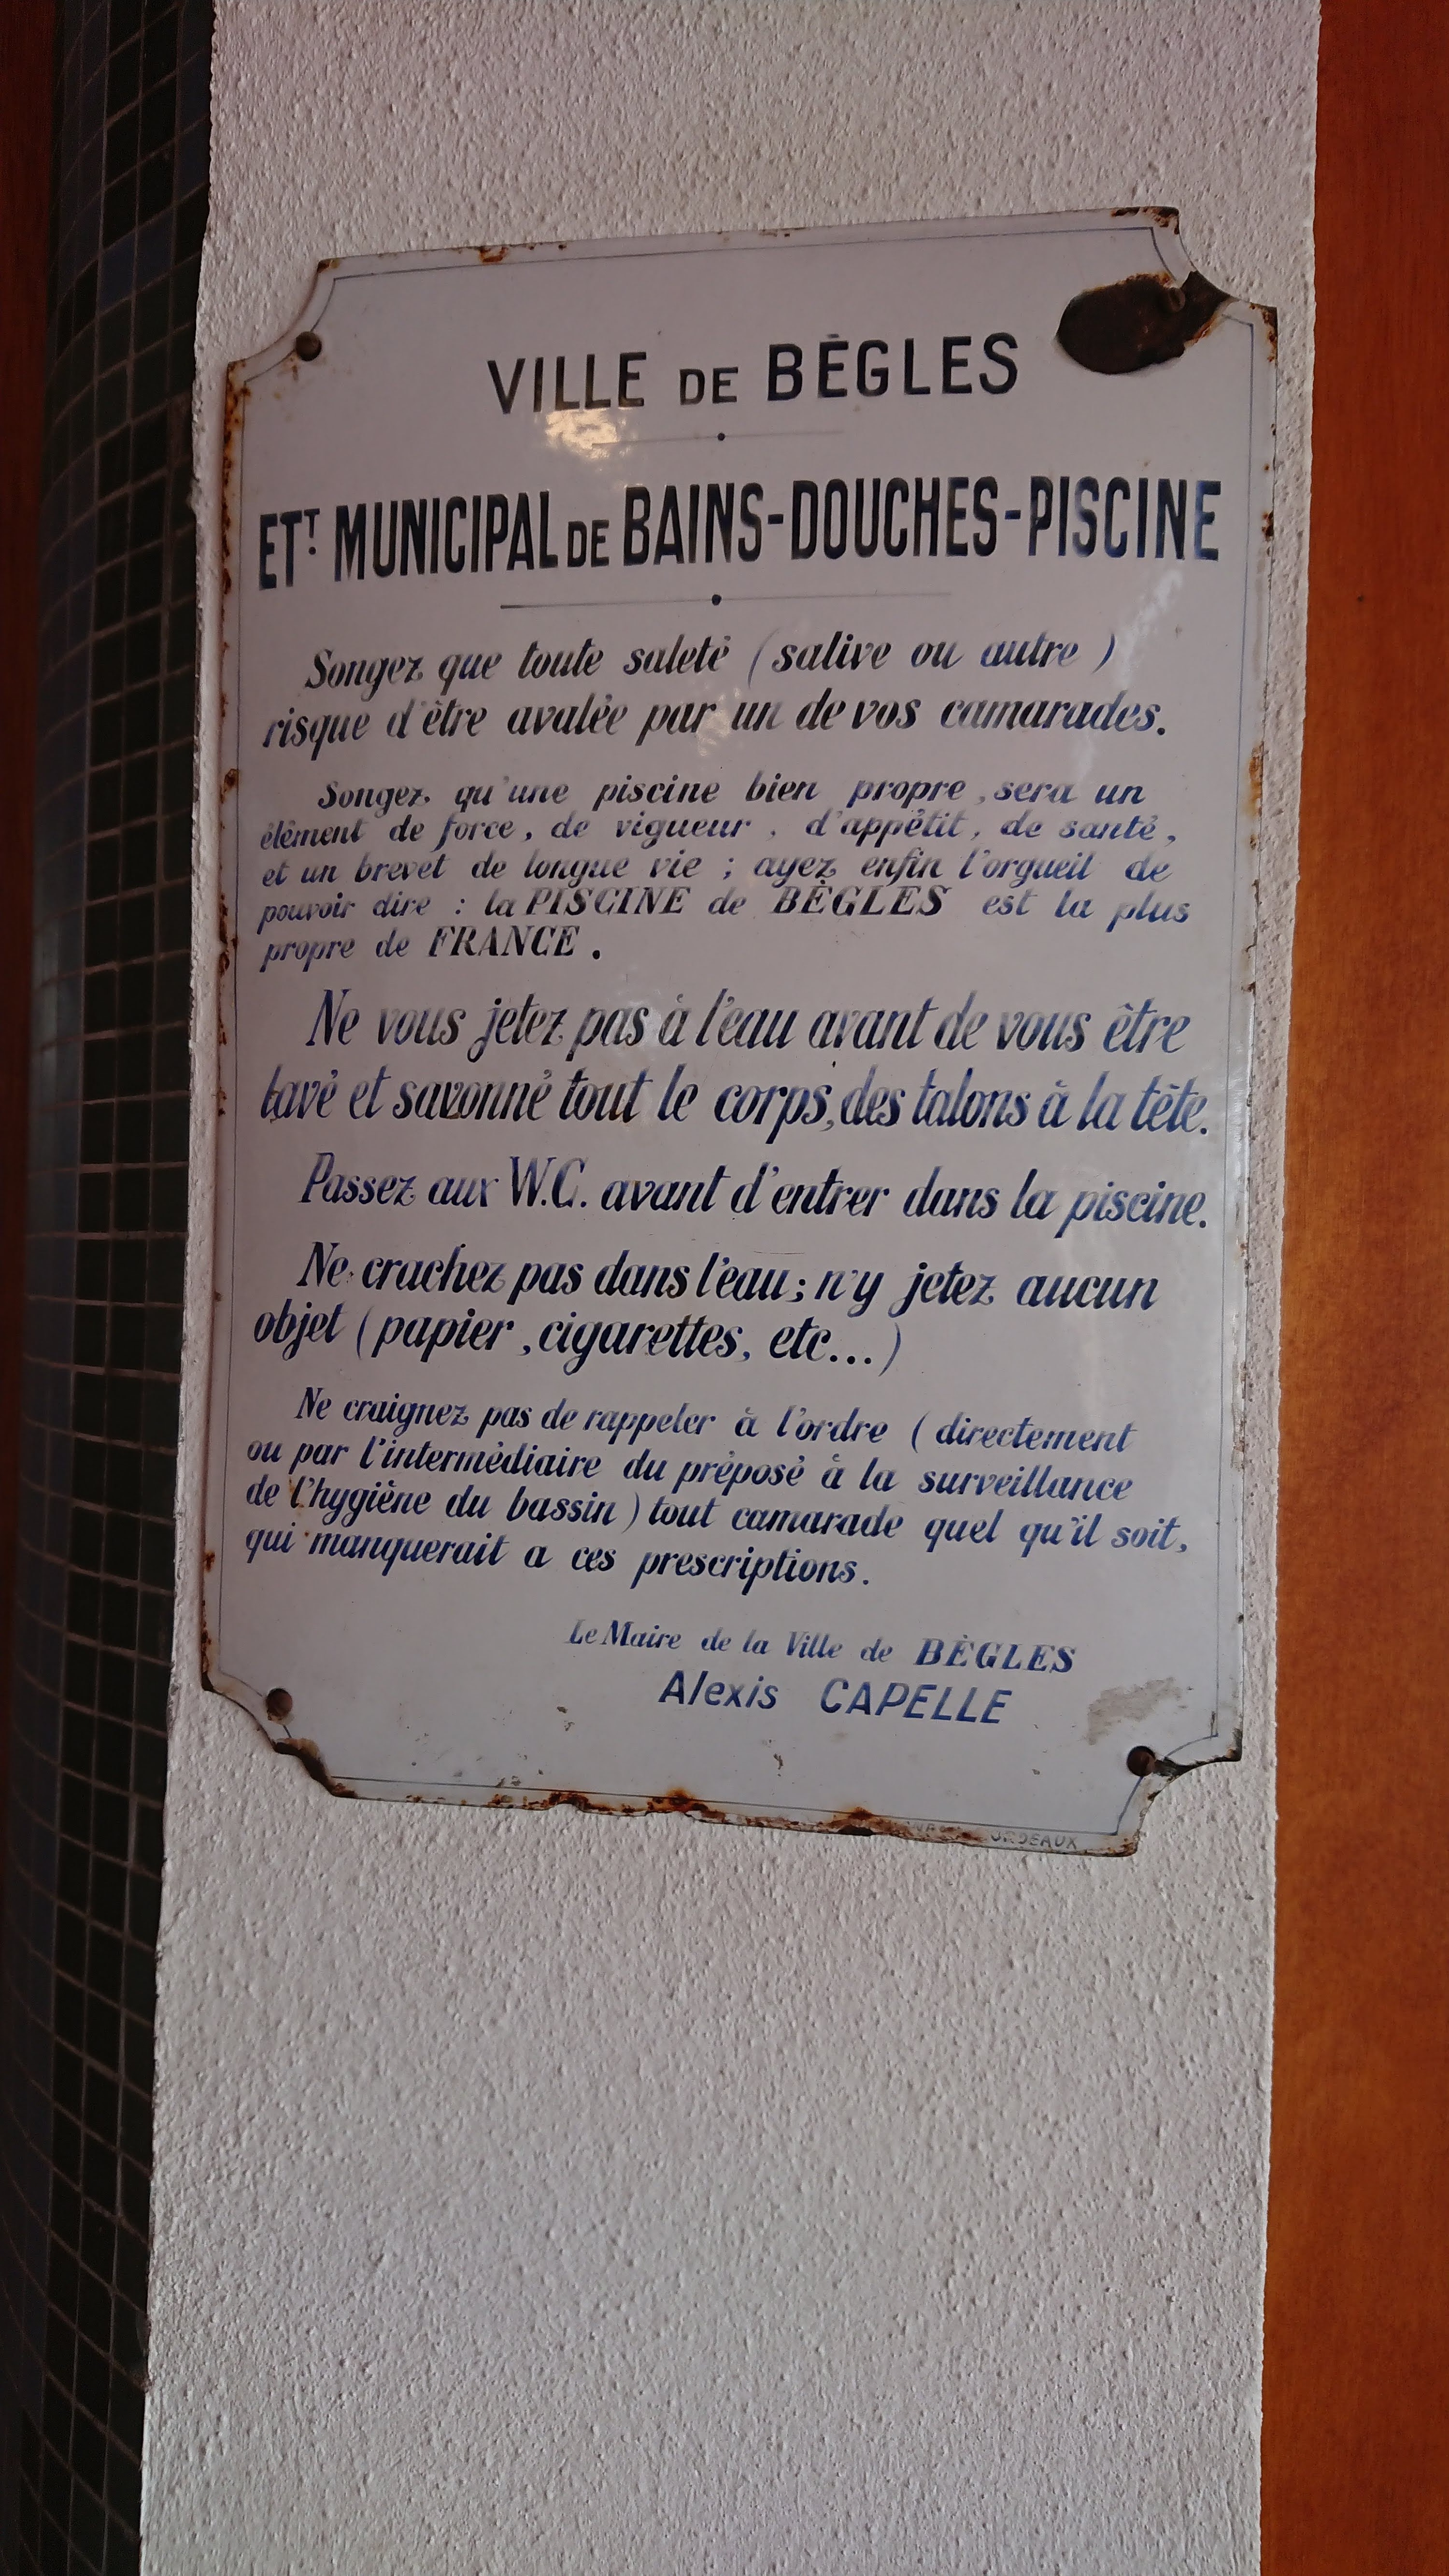 VILLE DE BÈGLES
ETT. MUNICIPAL DE BAINS-DOUCHES-PISCINE
Songez que toute saleté (salive ou autre)
risque d'être avalée par un de vos camarades.
Songez qu'une piscine bien propre, sera un
élément de force, de vigueur, d'appétit, de santé,
et un brevet de longue vie ; ayez enfin l'orgueil de
pouvoir dire : la PISCINE de BÈGLES est la plus
propre de FRANCE.
Ne vous jetez pas à l'eau avant de vous être
lavé et savonné tout le corps, des talons à la tête.
Passez aux W.C. avant d'entrer dans la piscine.
Ne crachez pas dans l'eau ; n'y jetez aucun
objet (papier, cigarettes, etc...)
Ne craignez pas de rappeler à l'ordre (directement
ou par l'intermédiaire du préposé à la surveillance
de l'hygiène du bassin) tout camarade quel qu'il soit,
qui manquerait a ces prescriptions.
Le Maire de la Ville de BÈGLES
Alexis CAPELLE